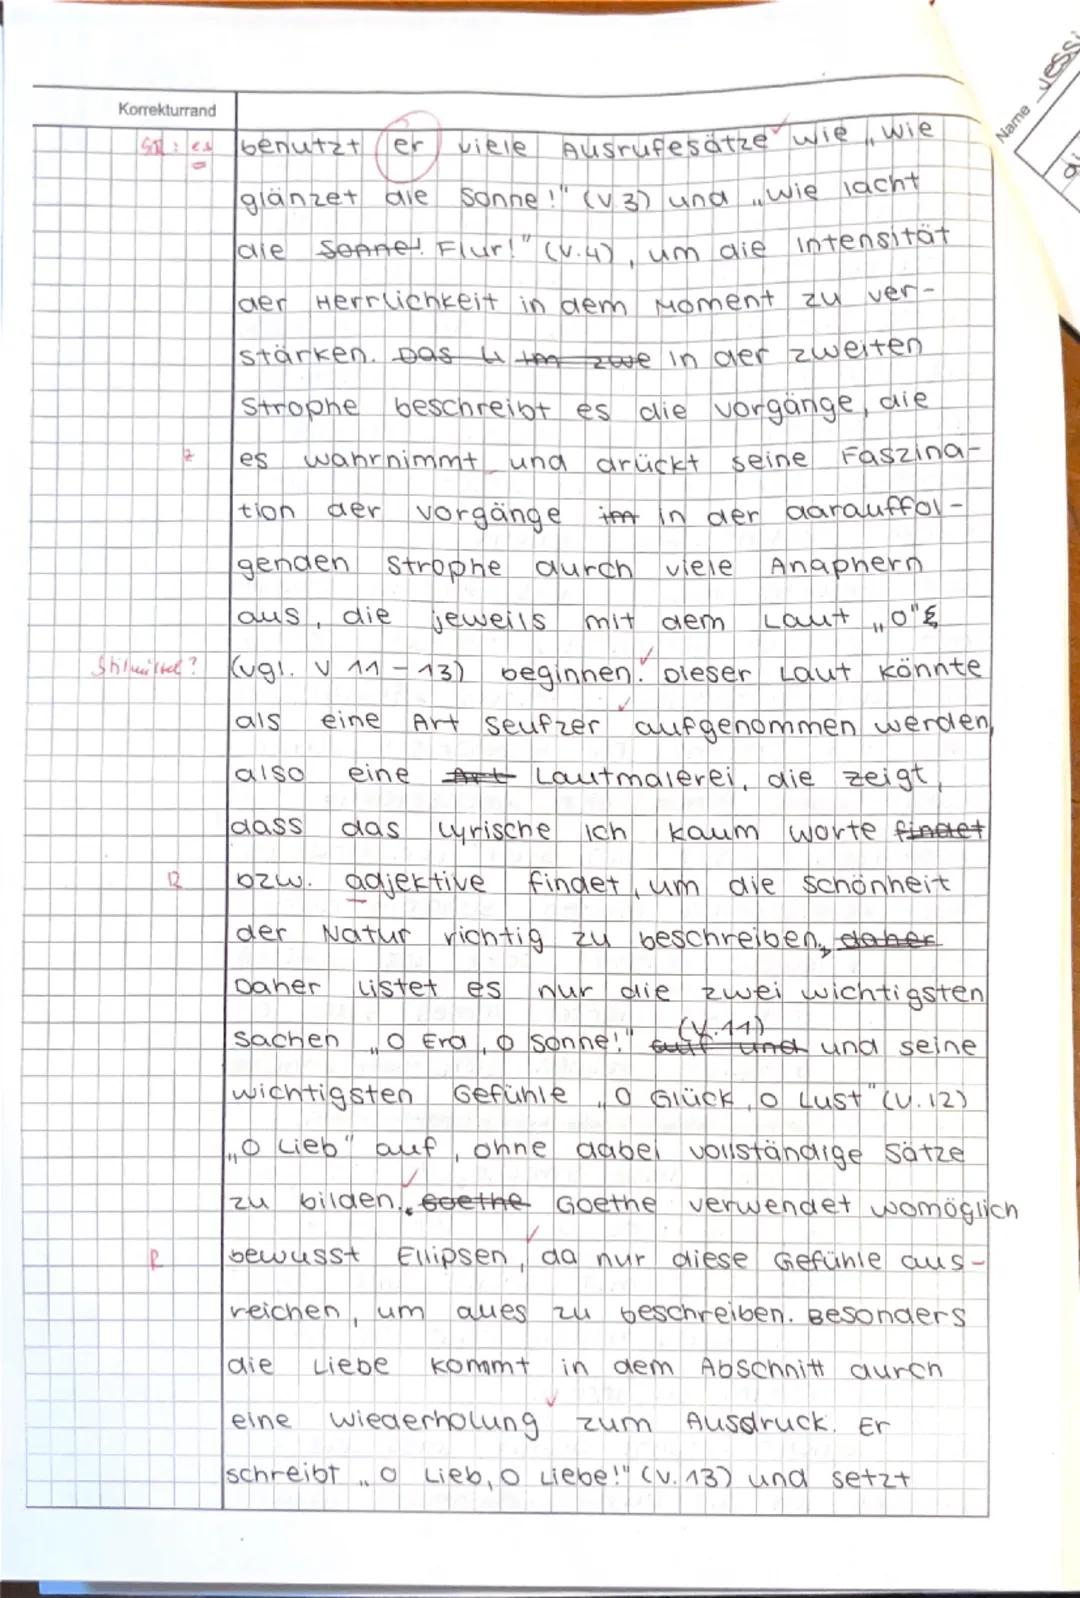 Name Jessi
Korrekturrand
es benutzt er viele Ausrufesätze wie „Wie
glänzet die Sonne!" (V.3) und „Wie lacht
die Sonne! Flur!" (V.4), um die Intensität
der Herrlichkeit in dem Moment zu ver-
stärken. Das im zwe In der zweiten
Strophe beschreibt es die Vorgänge, die
Z es wahrnimmt und drückt seine Faszina-
tion der Vorgänge im in der darauffol-
genden Strophe durch viele Anaphern
aus, die jeweils mit dem Laut „O"
Stilmittel? (vgl. V 11-13) beginnen. Dieser Laut könnte
als eine Art Seufzer aufgenommen werden,
also eine Art Lautmalerei, die zeigt,
dass das lyrische Ich kaum Worte findet
R bzw. adjektive findet, um die Schönheit
der Natur richtig zu beschreiben, daher
Daher listet es nur die zwei wichtigsten
Sachen „O Erd, O Sonne!" (V.11) auf und und seine
wichtigsten Gefühle „O Glück, O Lust" (V.12)
„O Lieb" auf, ohne dabei vollständige Sätze
zu bilden. Goethe Goethe verwendet womöglich
R bewusst Ellipsen, da nur diese Gefühle aus-
reichen, um alles zu beschreiben. Besonders
die Liebe kommt in dem Abschnitt durch
eine Wiederholung zum Ausdruck. Er
schreibt „O Lieb, O Liebe!" (V.13) und setzt